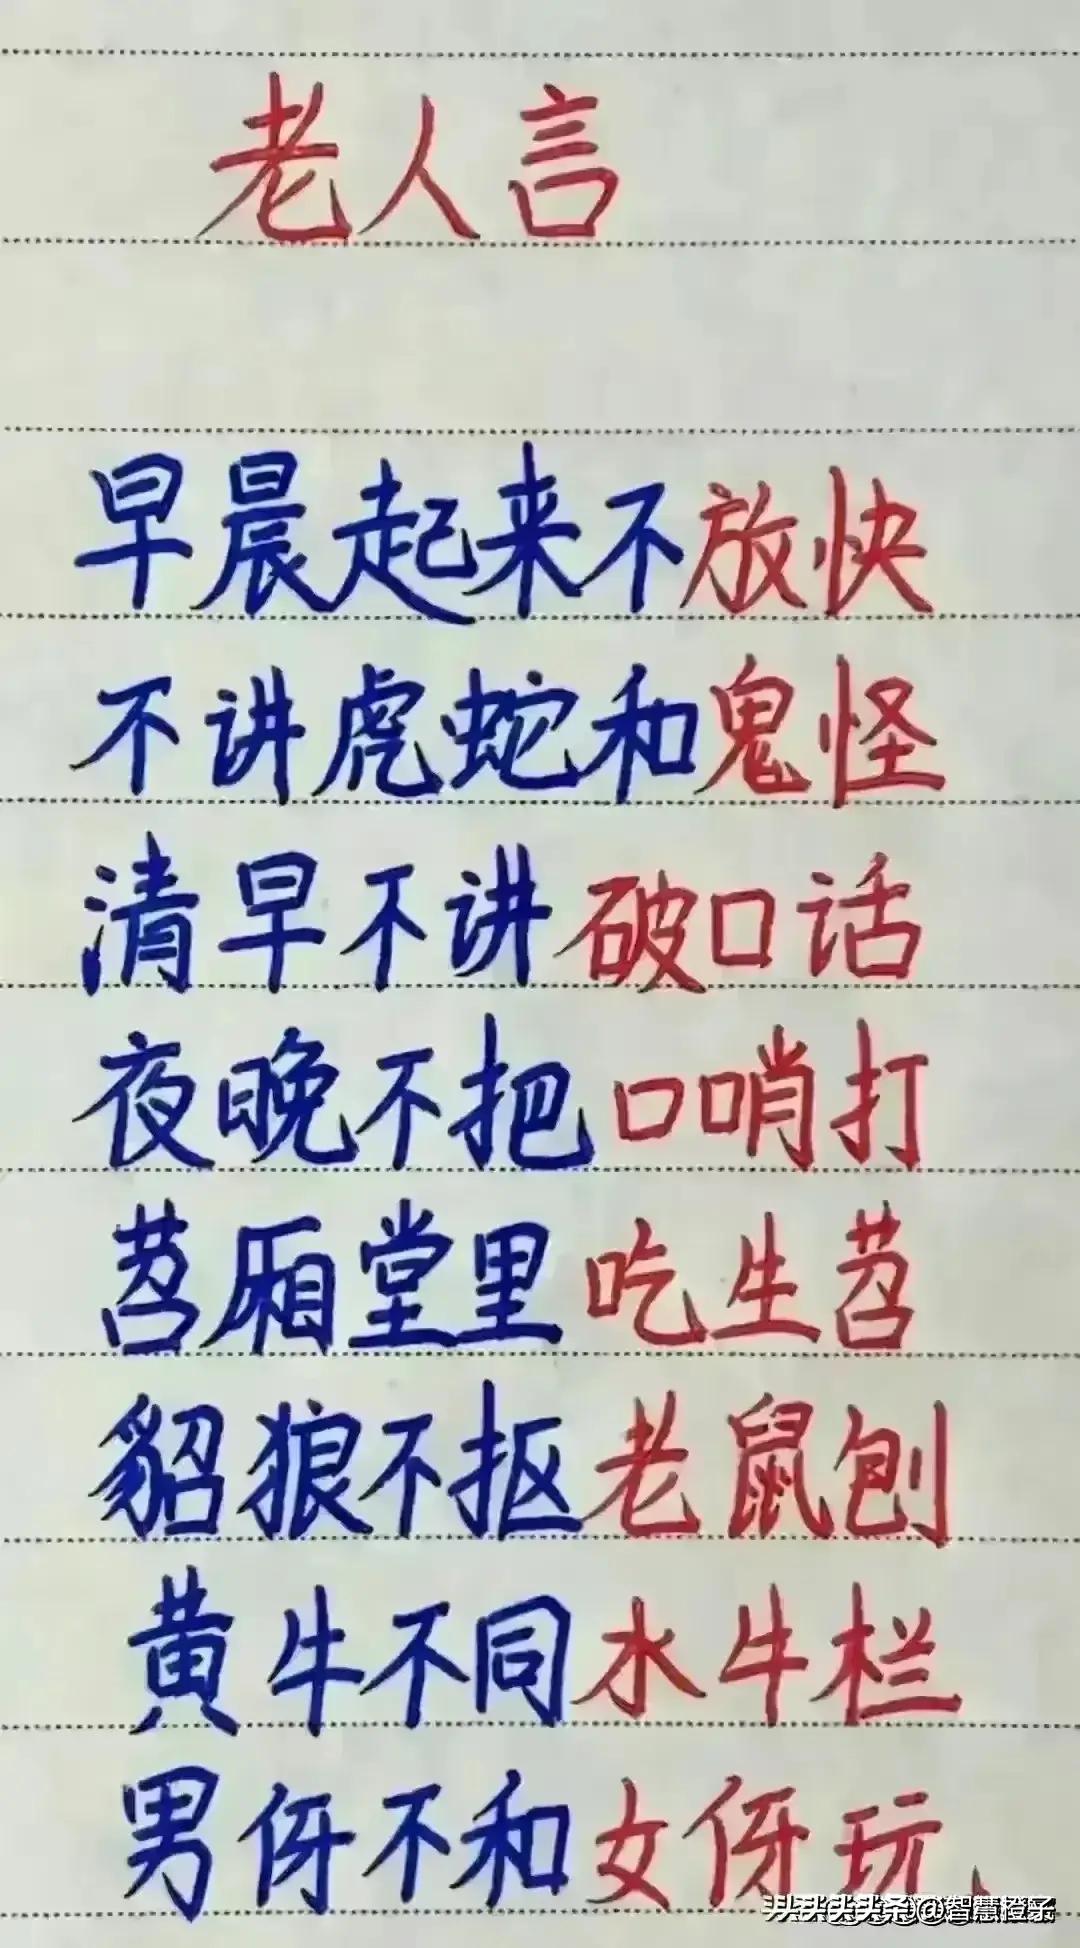 老人言
早晨起来不放快
不讲虎蛇和鬼怪
清早不讲破口话
夜晚不把口哨打
苕厢堂里吃生苕
貂狼不抠老鼠刨
黄牛不同水牛栏
男伢不和女伢玩、
头条@智慧橙子